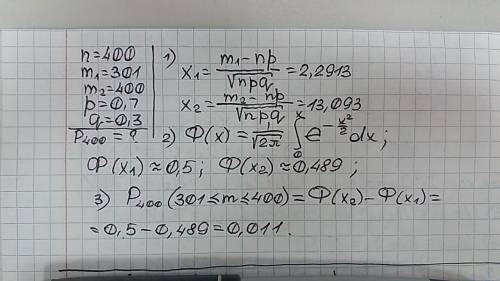 n=400
m₁=301
m₂=400
p=0,7
q=0,3
P₄₀₀=?
1)
x₁= (m₁-np)/√npq =2,2913
x₂= (m₂-np)/√npq =13,093
2) Φ(x)= 1/√2π ∫₀ˣ e^(-x²/2) dx;
Φ(x₁)≈0,5; Φ(x₂)≈0,489;
3) P₄₀₀(301≤m≤400)=Φ(x₂)-Φ(x₁)=
=0,5-0,489=0,011.